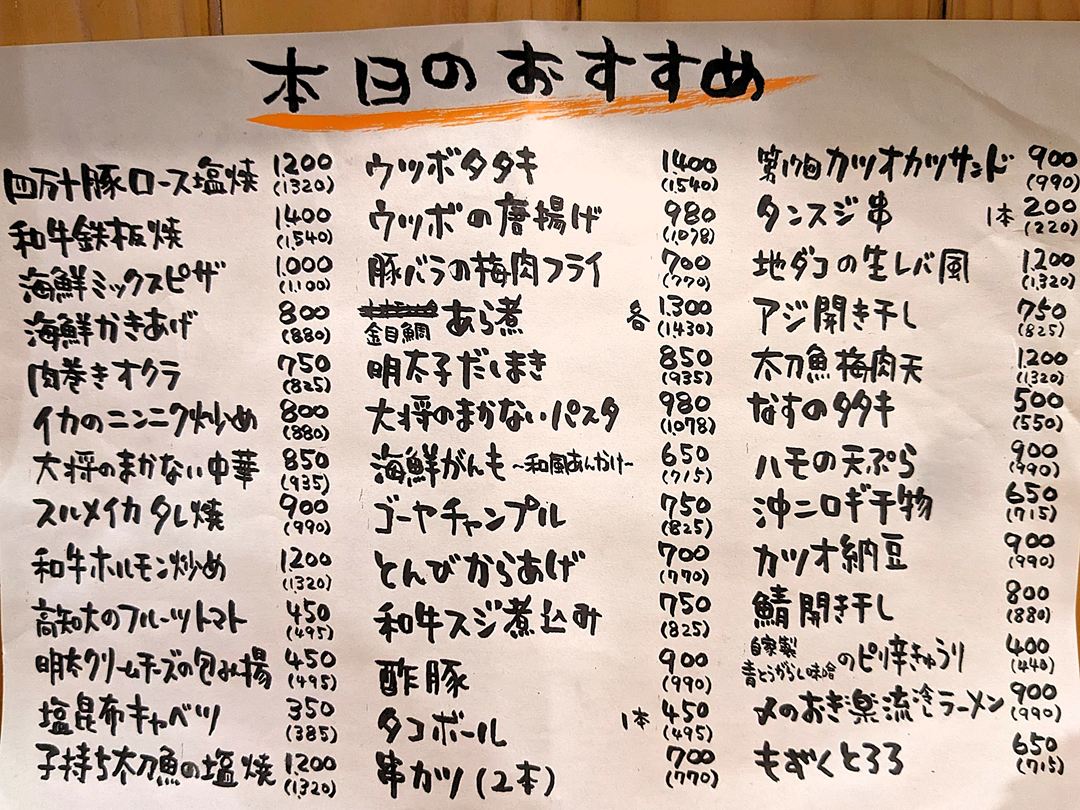 本日のおすすめ
四万十豚ロース塩焼 1200 (1320)
和牛鉄板焼 1400 (1,540)
海鮮ミックスピザ 1,000 (1,100)
海鮮かきあげ 800 (880)
肉巻きオクラ 750 (825)
イカのニンニク炒め 800 (880)
大将のまかない中華 850 (935)
スルメイカタレ焼 900 (990)
和牛ホルモン炒め 1200 (1,320)
高知大のフルーツトマト 450 (495)
明太クリームチーズの包み揚 450 (495)
塩昆布キャベツ 350 (385)
子持ち太刀魚の塩焼 1200 (1,320)
ウツボタタキ 1,400 (1,540)
ウツボの唐揚げ 980 (1,078)
豚バラの梅肉フライ 700 (770)
金目鯛 あら煮 各 1.300 (1430)
明太子だしまき 850 (935)
大将のまかないパスタ 980 (1,078)
海鮮がんも ~和風あんかけ~ 650 (715)
ゴーヤチャンプル 750 (825)
とんびからあげ 700 (770)
和牛スジ煮込み 750 (825)
酢豚 900 (990)
タコボール 1本 450 (495)
串カツ(2本) 700 (770)
カツオカツサンド 900 (990)
タンスジ串 1本 200 (220)
地ダコの生レバ風 1.200 (1,320)
アジ開き干し 750 (825)
太刀魚梅肉天 1200 (1320)
なすのタタキ 500 (550)
ハモの天ぷら 900 (990)
沖ニロギ干物 650 (715)
カツオ納豆 900 (990)
鯖開き干し 800 (880)
自家製 青とうがらし味噌のピリ辛きゅうり 400 (440)
〆のおき楽流冷しラーメン 900 (990)
もずくとろろ 650 (715)